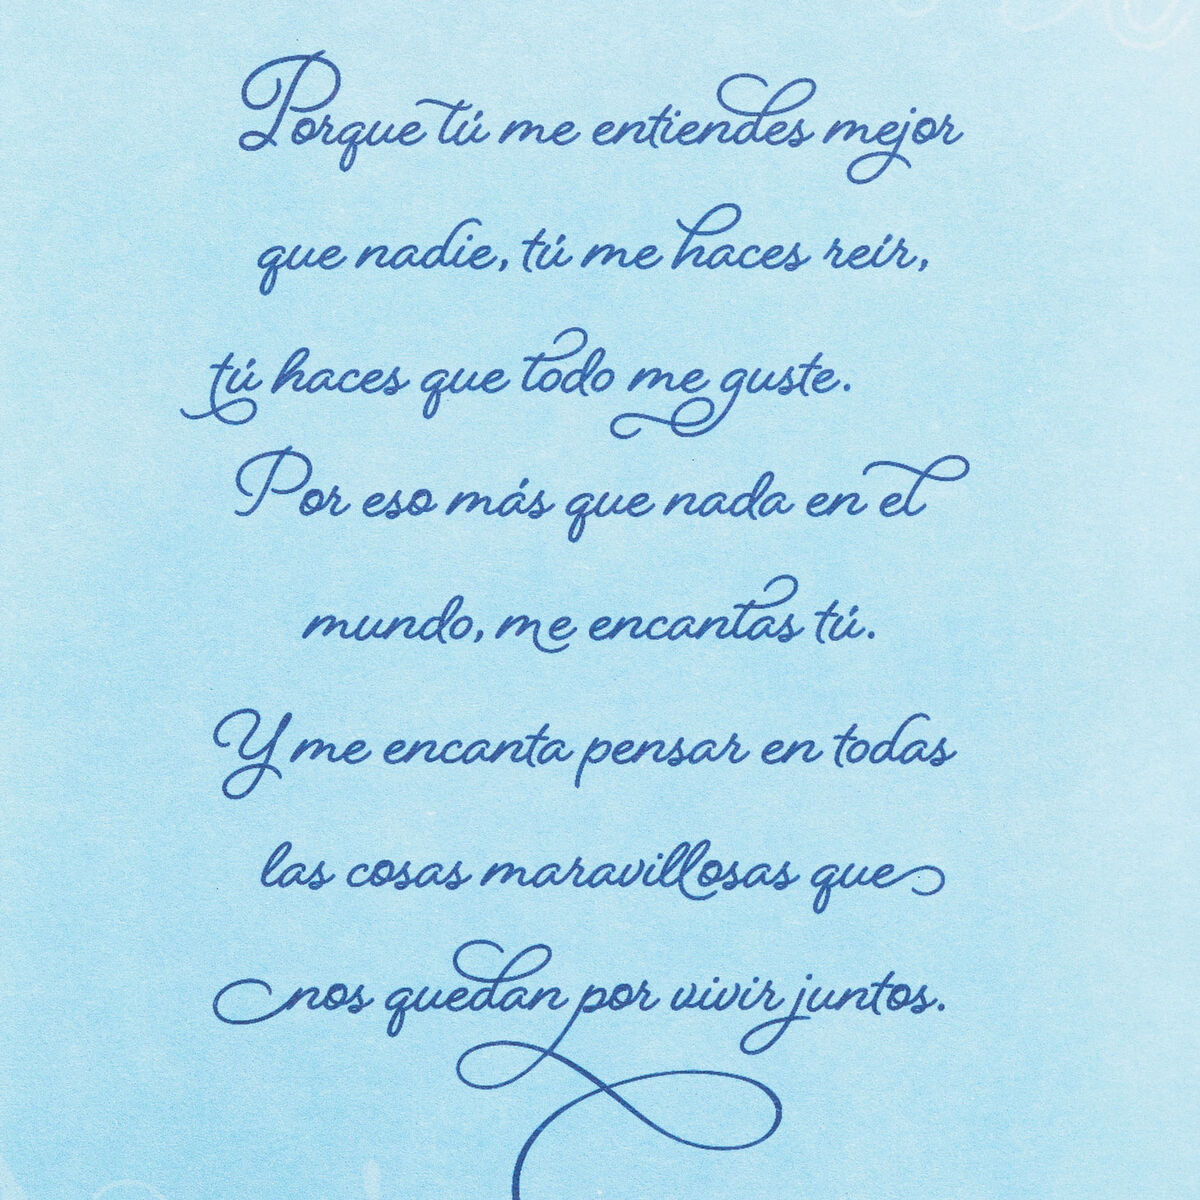 Porque tú me entiendes mejor
que nadie, tú me haces reír,
tú haces que todo me guste.
Por eso más que nada en el
mundo, me encantas tú.
Y me encanta pensar en todas
las cosas maravillosas que
nos quedan por vivir juntos.